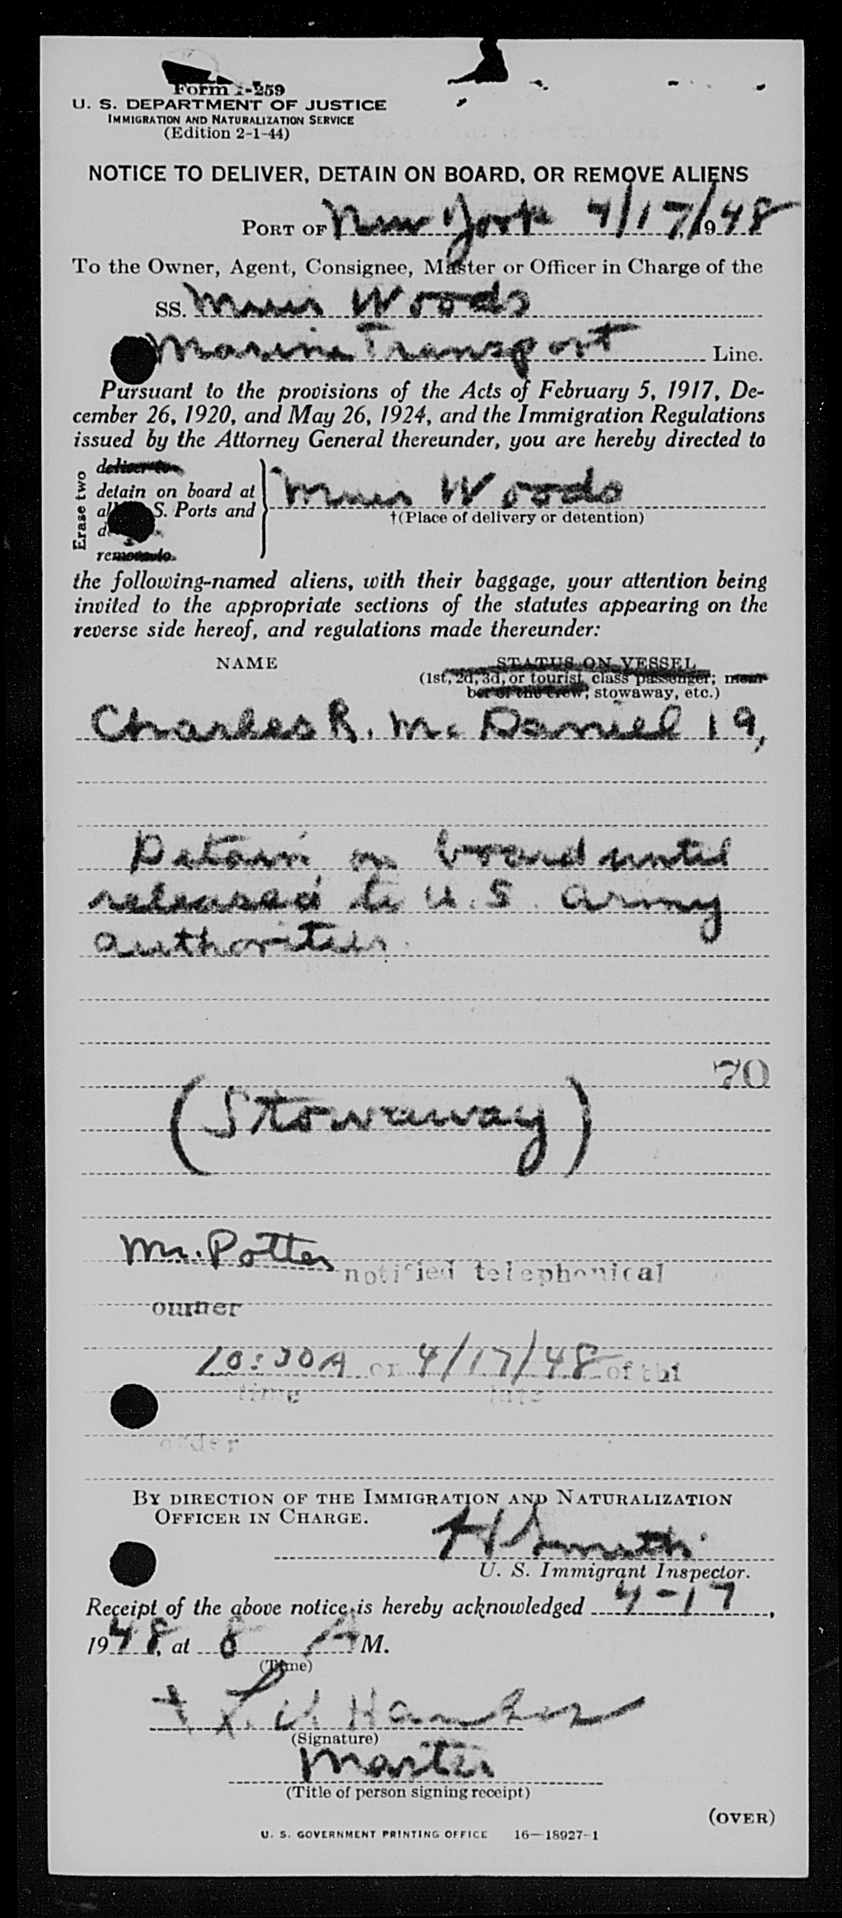 Form I-259
U. S. DEPARTMENT OF JUSTICE
IMMIGRATION AND NATURALIZATION SERVICE
(Edition 2-1-44)
NOTICE TO DELIVER, DETAIN ON BOARD, OR REMOVE ALIENS
PORT OF New York 4/17/1948
To the Owner, Agent, Consignee, Master or Officer in Charge of the
SS. Muir Woods
Marine Transport Line.
Pursuant to the provisions of the Acts of February 5, 1917, De-
cember 26, 1920, and May 26, 1924, and the Immigration Regulations
issued by the Attorney General thereunder, you are hereby directed to
Erase two
deliver to
detain on board at
all S. Ports and
remove to
Muir Woods
†(Place of delivery or detention)
the following-named aliens, with their baggage, your attention being
invited to the appropriate sections of the statutes appearing on the
reverse side hereof, and regulations made thereunder:
NAME STATUS ON VESSEL
(1st, 2d, 3d, or tourist class passenger; mem-
ber of the crew; stowaway, etc.)
Charles R. Mc Daniel 19,
Detain on board until
released to U.S. Army
authorities.
70
(Stowaway)
Mr. Potter notified telephonical
owner
10:30A on 4/17/48 of thi
time date
order
BY DIRECTION OF THE IMMIGRATION AND NATURALIZATION
OFFICER IN CHARGE.
H Smith
U. S. Immigrant Inspector.
Receipt of the above notice is hereby acknowledged 4-17,
1948, at 8 A M.
(Time)
(Signature)
Master
(Title of person signing receipt)
(OVER)
U. S. GOVERNMENT PRINTING OFFICE 16—18927-1